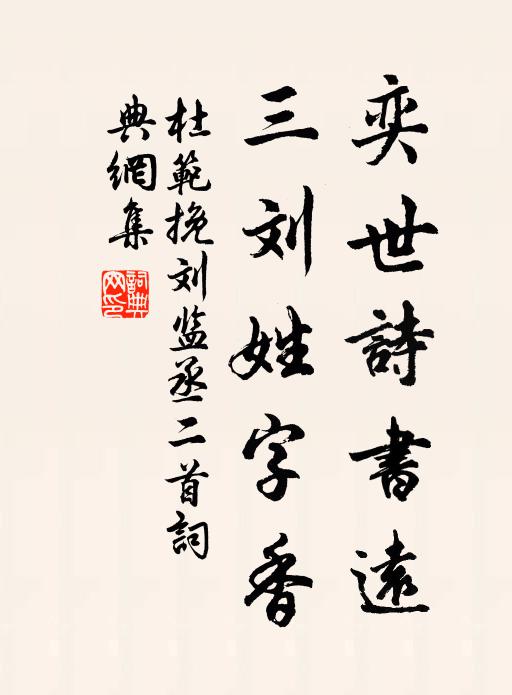 奕世詩書遠
三刘姓字香
杜範挽刘监丞二首詞
典網集
詞典
网印